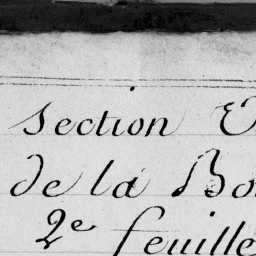 Section
de la
2e feuille